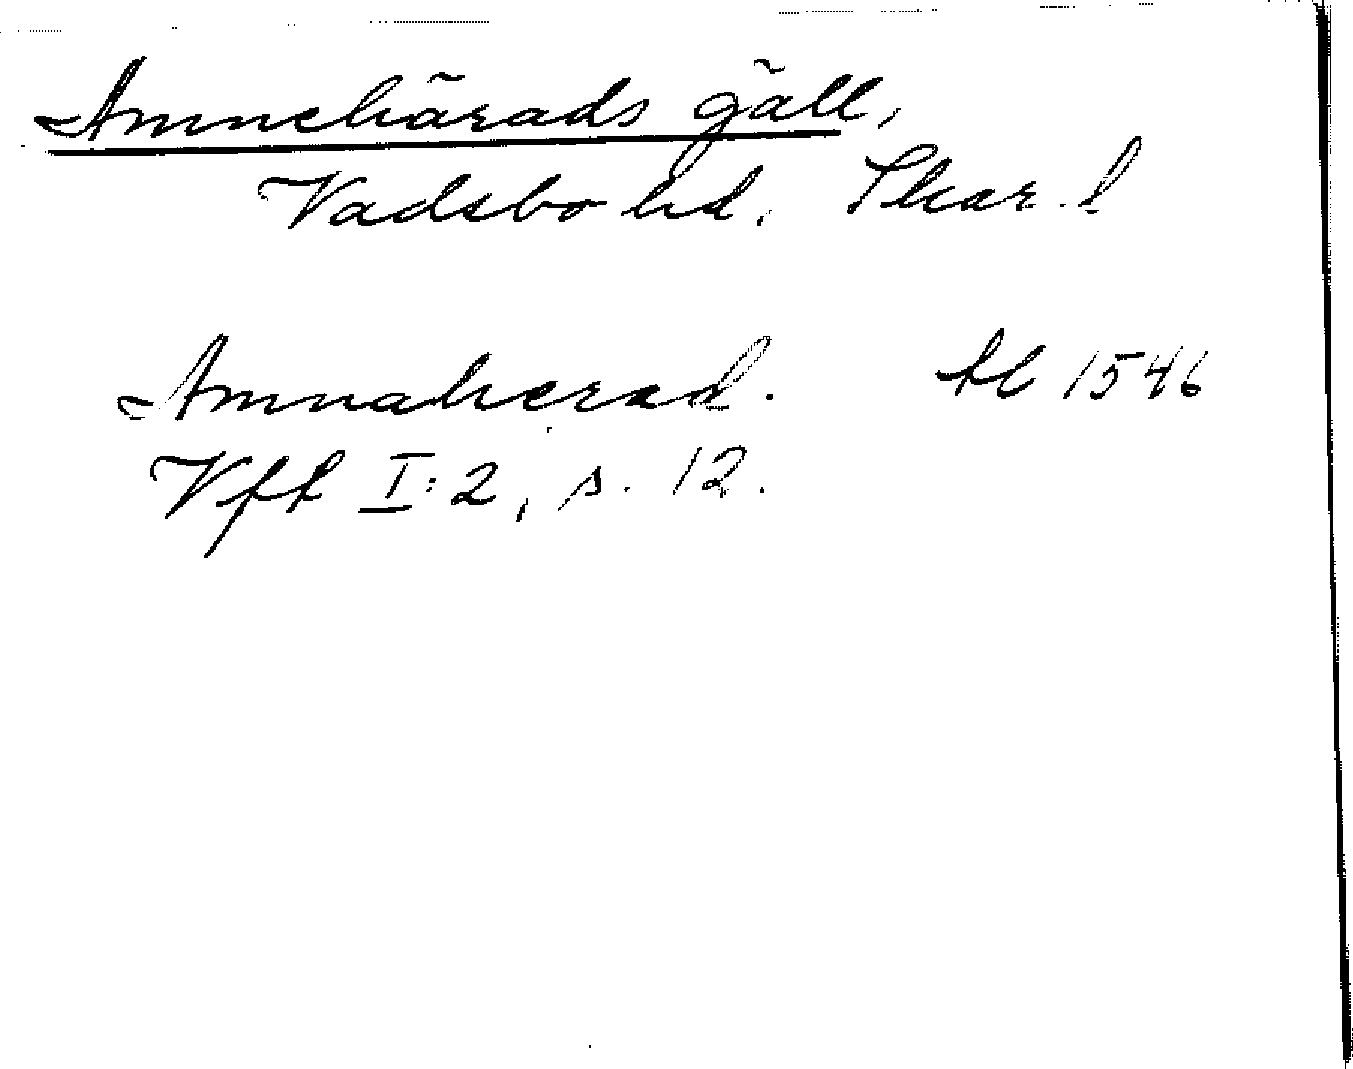 Amnehärads gäll,
Vadsbo hd. Skar. l
Amnaherad. 1546
Vff I:2, s. 12.